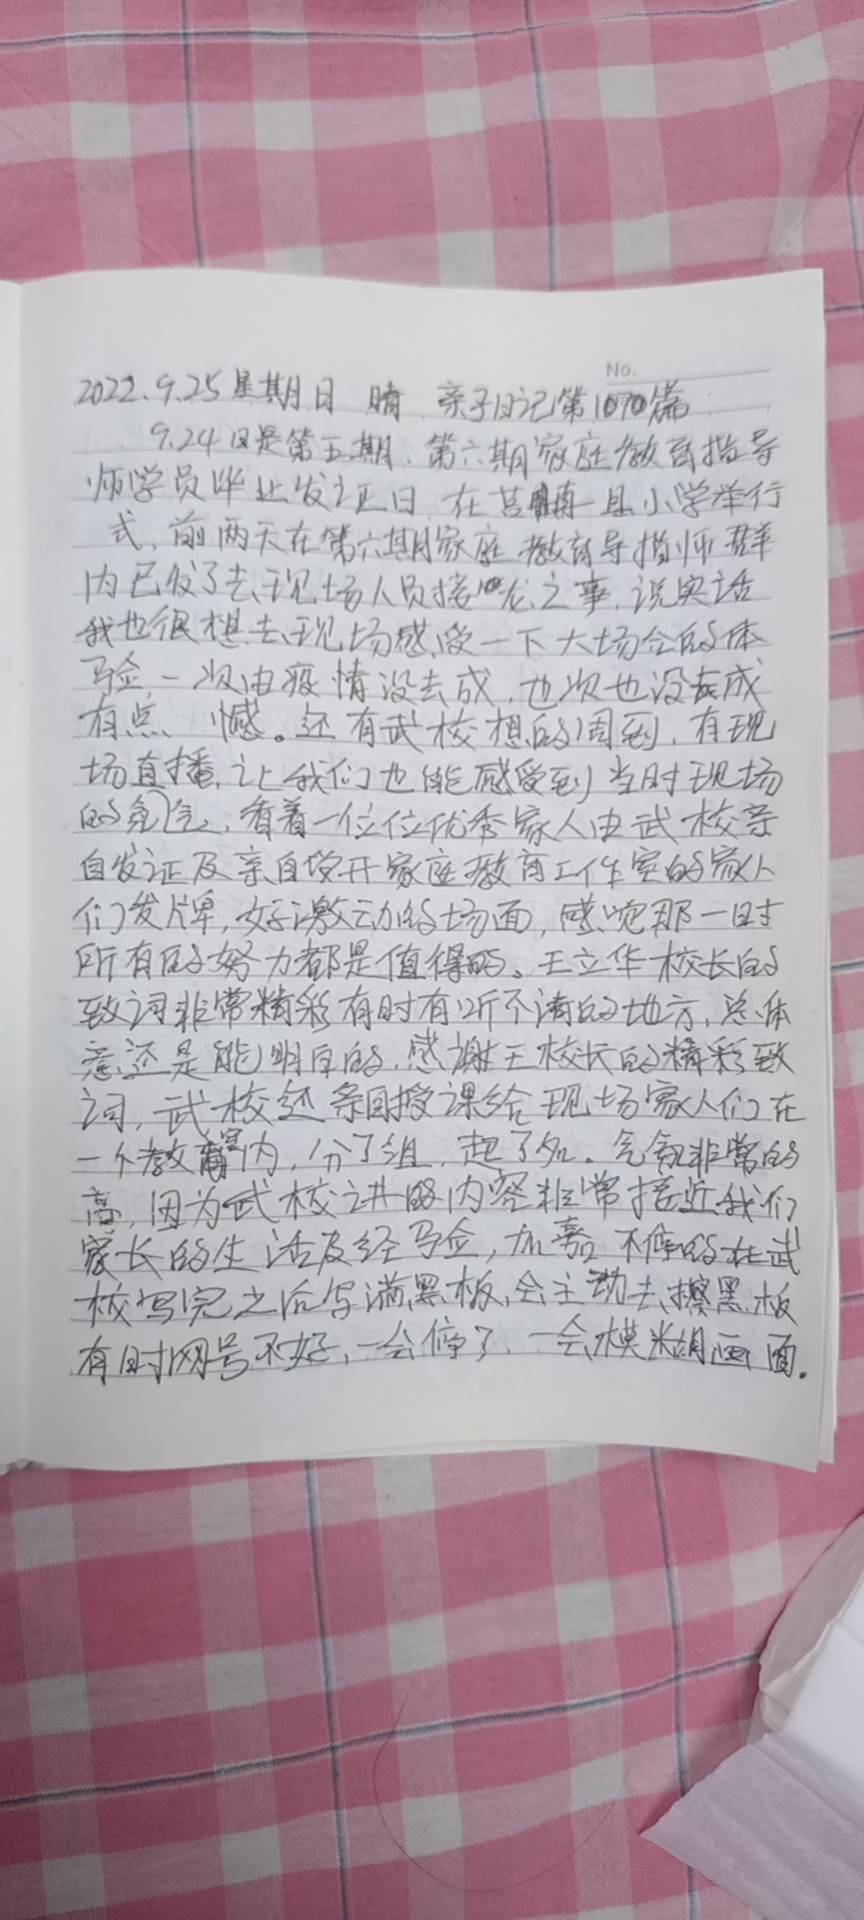 No.
2022.9.25 星期日 晴 亲子日记第1070篇
9.24日是第五期、第六期家庭教育指导
师学员毕业发证日,在莒县一小学举行
式,前两天在第六期家庭教育导指师群
内已发了去现场人员接龙之事,说实话
我也很想去现场感受一下大场合的体
验,一次由疫情没去成,也次也没去成
有点 憾。还有武校想的周到,有现
场直播,让我们也能感受到当时现场
的氛气,看着一位位优秀家人由武校亲
自发证及亲自授开家庭教育工作室的家人
们发牌,好激动的场面,感觉那一时
所有的努力都是值得的。王立华校长的
致词非常精彩有时有听不清的地方,总体
意还是能明白的,感谢王校长的精彩致
词,武校还亲自授课给现场家人们在
一个教室内,分了组,起了名。气氛非常的
高,因为武校讲的内容非常接近我们
家长的生活及经验,加嘉 不停的在武
校写完之后写满黑板,会主动去擦黑板
有时网号不好,一会停了,一会模糊画面。